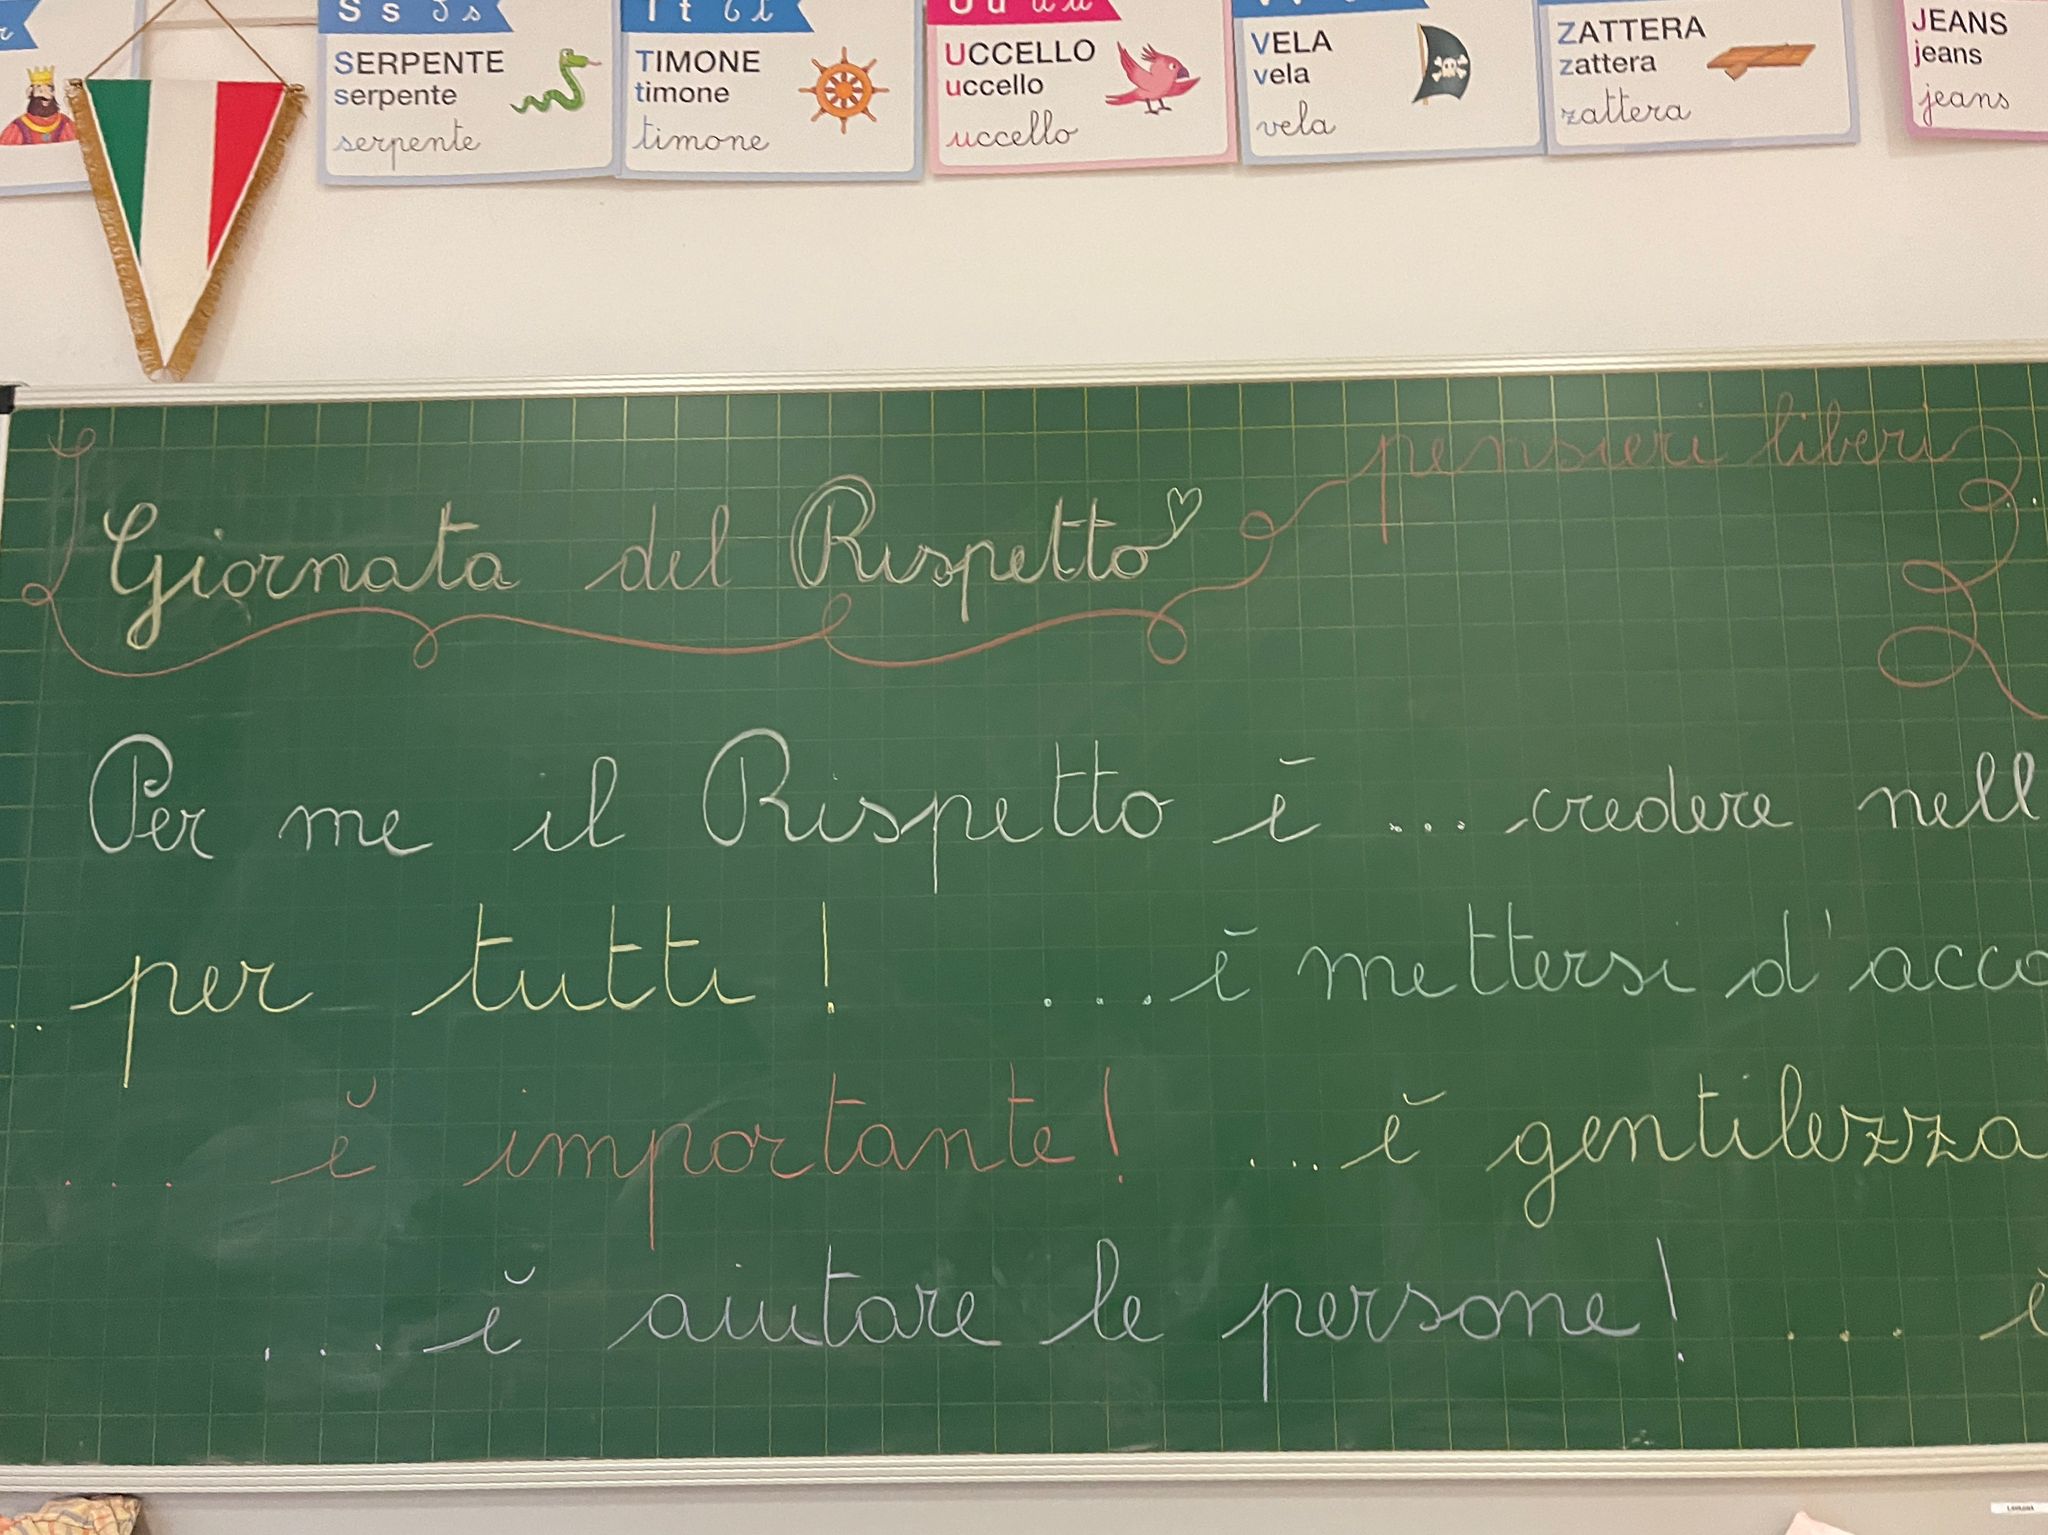 S s S s
T t T t
U u U u
SERPENTE
serpente
serpente
TIMONE
timone
timone
UCCELLO
uccello
uccello
VELA
vela
vela
ZATTERA
zattera
zattera
JEANS
jeans
jeans
pensieri liberi
Giornata del Rispetto
Per me il Rispetto è ... credere nell
... per tutti! ... è mettersi d'acco
... è importante! ... è gentilezza
... è aiutare le persone! ... è